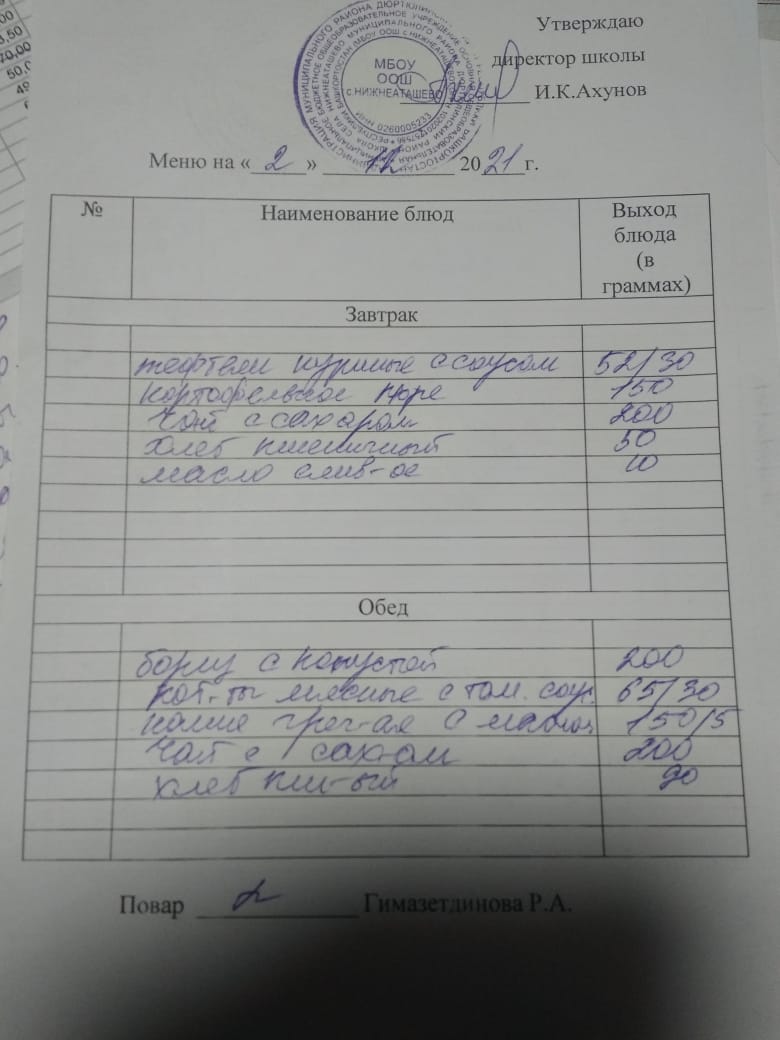 00
3,50
70,00
50,0
Утверждаю
директор школы
И.К.Ахунов
МБОУ
ООШ
с НИЖНЕАТАШЕВО
ИНН 0260005233
Меню на «2» 12 2021г.
№ Наименование блюд Выход
блюда
(в
граммах)
Завтрак
тефтели куриные с соусом 52/30
картофельное пюре 150
Чай с сахаром 200
хлеб пшеничный 50
масло слив-ое 10
Обед
борщ с капустой 200
кот-ты мясные с том. соус. 65/30
каша греч-ая с маслом 150/5
Чай с сах-ом 200
хлеб пш-ый 90
Повар Гимазетдинова Р.А.